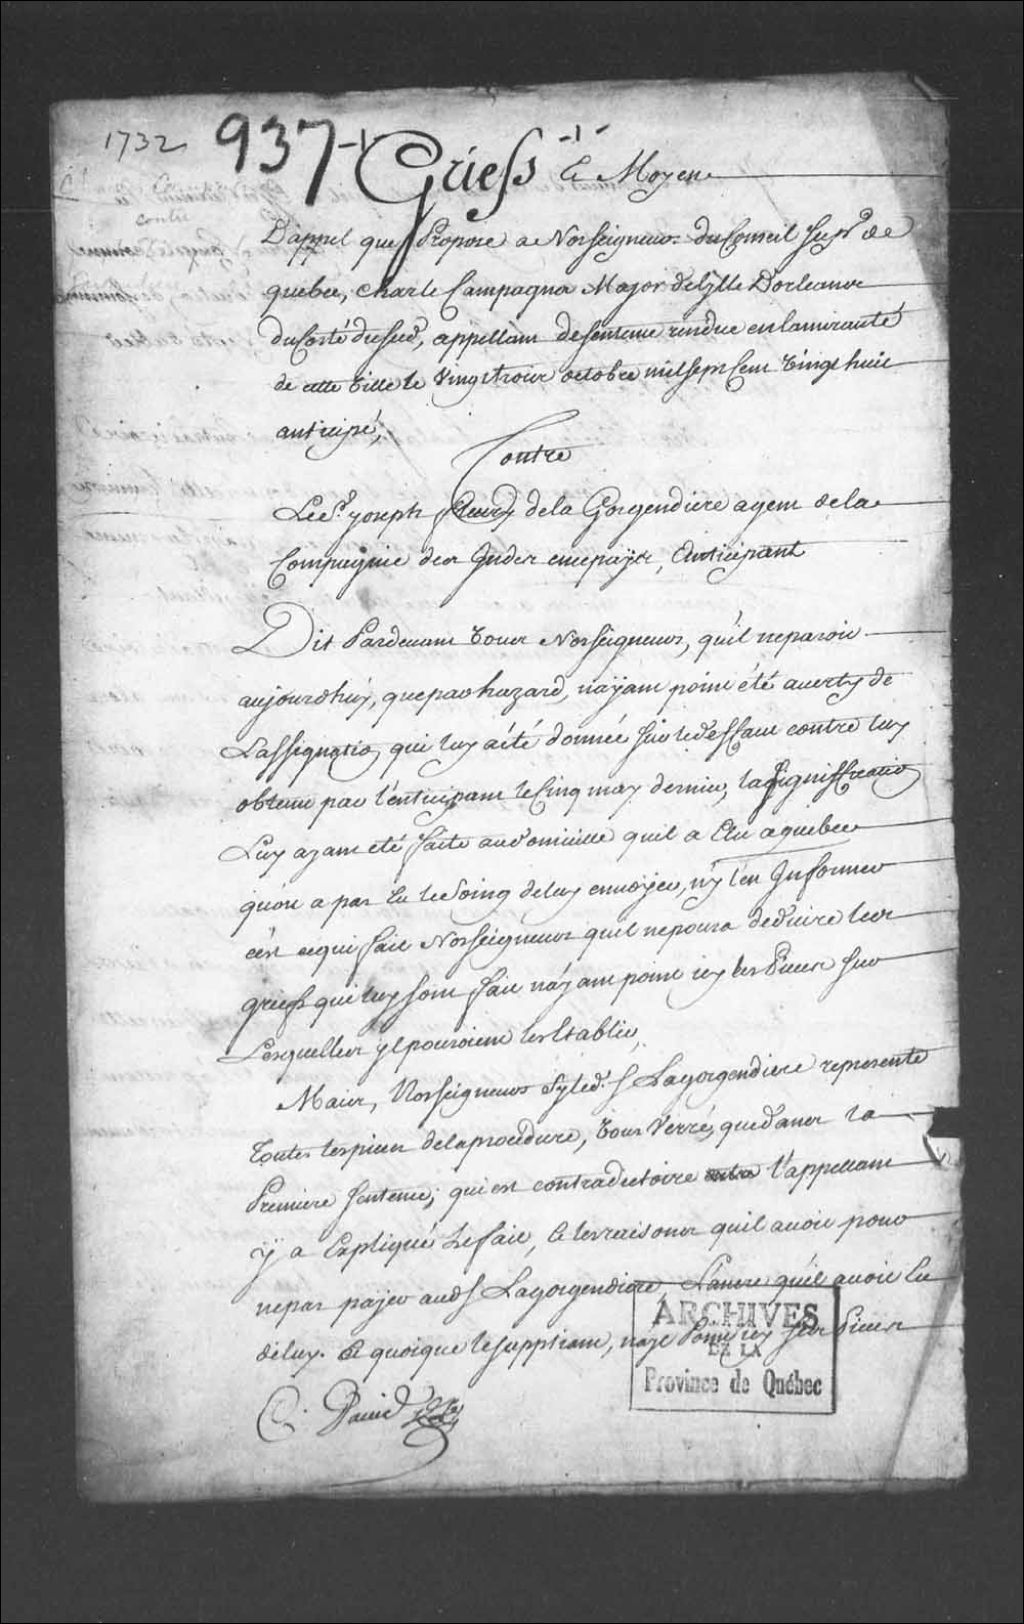 1732
937-1
-1-
Griefs Et Moyens
D'appel que Propose a Nosseigneurs du Conseil Supr de
quebec, charle Campagna Major de lylle Dorleans
du Costé du sud, appellant de sentence rendue en lamirauté
de cette Ville le Vingt trois octobre mil sept Cent Vingt huit
anticipé,
Contre
Le Sr. joseph fleury de la Gorgendiere agent de la
Compagnie des Indes en ce païs, Anticipant
Dit Pardevant Vous Nosseigneurs, qu'il ne paroit
aujourdhuy, que par hazard, n'aÿant point été averty de
Lassignation qui luy a été donnée sur le deffaut contre luy
obtenu par l'anticipant le Cinq may dernier, la signiffication
Luy ayant été faite au domicille quil a Elu a quebec
qu'on a pas Eu le Soing de luy envoÿer, n'y l'en Informer
c'est ce qui fait Nosseigneurs quil ne poura deduire les
griefs qui luy sont fait n'aÿant point icy les Pieces sur
Lesquelles yl pouroient les Etablir,
Mais, Nosseigneurs Sy led. S Lagorgendiere represente
Toutes les pieces de la procedure, Vous Verrés, que dans la
Premiere sentence; qui est contradictoire l'appellant
ÿ a Expliqué Le fait, Et les raisons quil avoit pour
ne pas païer aud S Lagorgendiere, L'ancre qu'il avoit Eu
de luy. Et quoique le suppliant, naye Point icy Ses Pieces
ARCHIVES
DE LA
Province de Québec